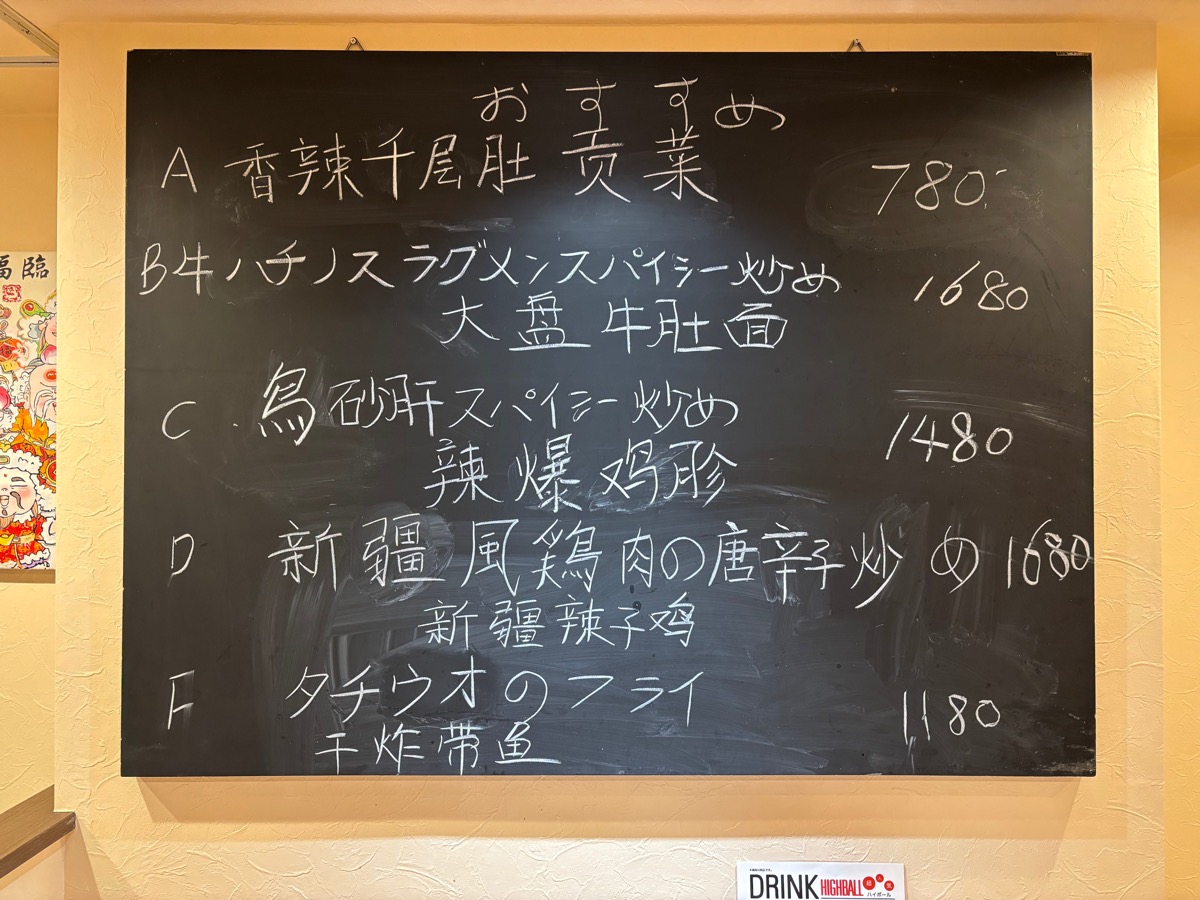 おすすめ
A 香辣千层肚 贡菜 780.-
B 牛ハチノスラグメンスパイシー炒め 1680
大盘牛肚面
C 鳥砂肝スパイシー炒め 1480
辣爆鸡胗
D 新疆風鶏肉の唐辛子炒め 1680
新疆辣子鸡
F タチウオのフライ 1180
干炸带鱼
福臨
DRINK HIGHBALL
ハイボール